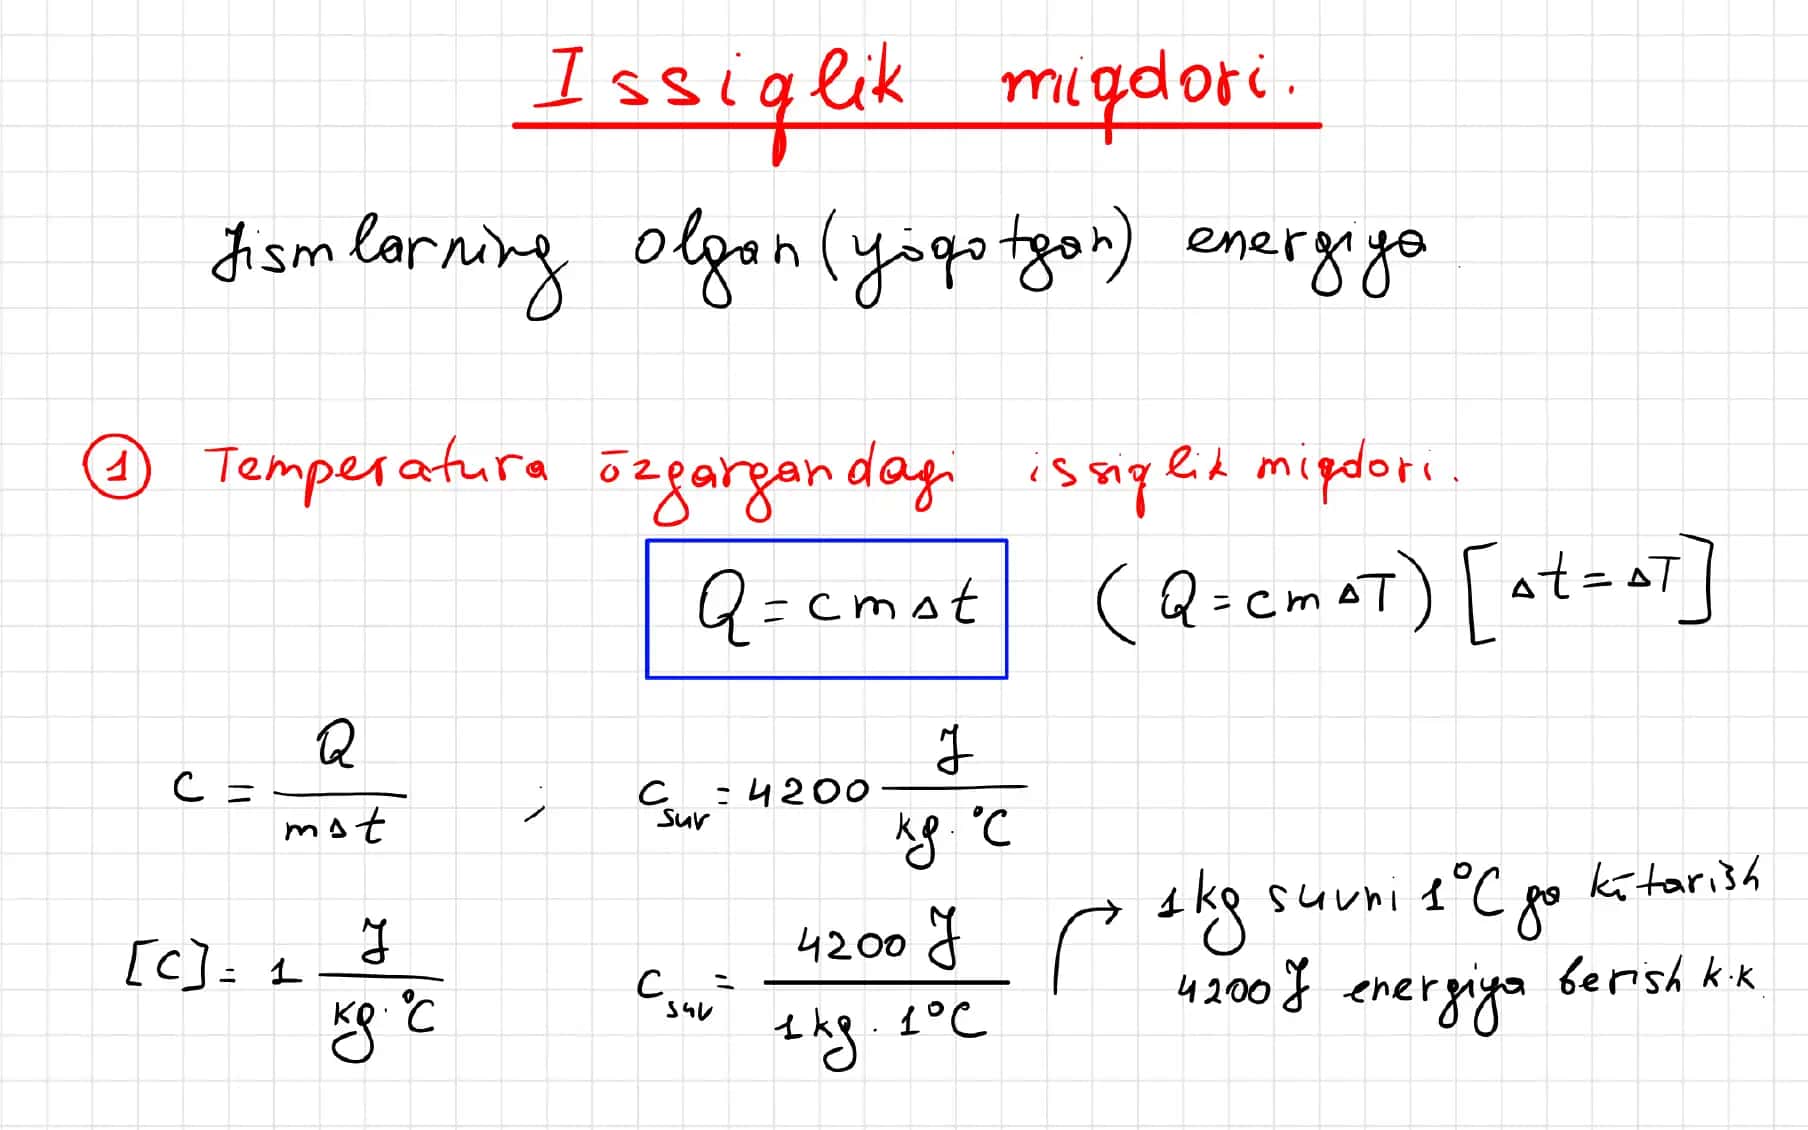 Issiqlik miqdori.
Jismlarning olgan (yōqotgan) energiya
① Temperatura ōzgargandagi issiqlik miqdori.
Q = cmΔt (Q = cmΔT) [Δt = ΔT]
c = Q / mΔt ; c_suv = 4200 J / kg·°C
[c] = 1 J / kg·°C
c_suv = 4200 J / 1kg · 1°C → 1kg suvni 1°C ga kōtarish
4200 J energiya berish k.k